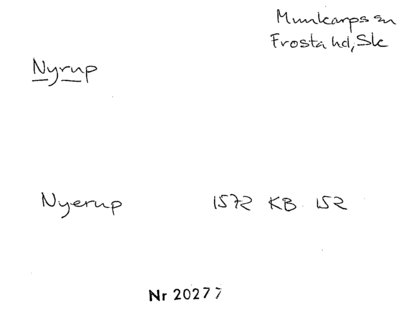 Munkarps sn
Frosta hd, Sk
Nyrup
Nyerup 1572 KB 152
Nr 20277